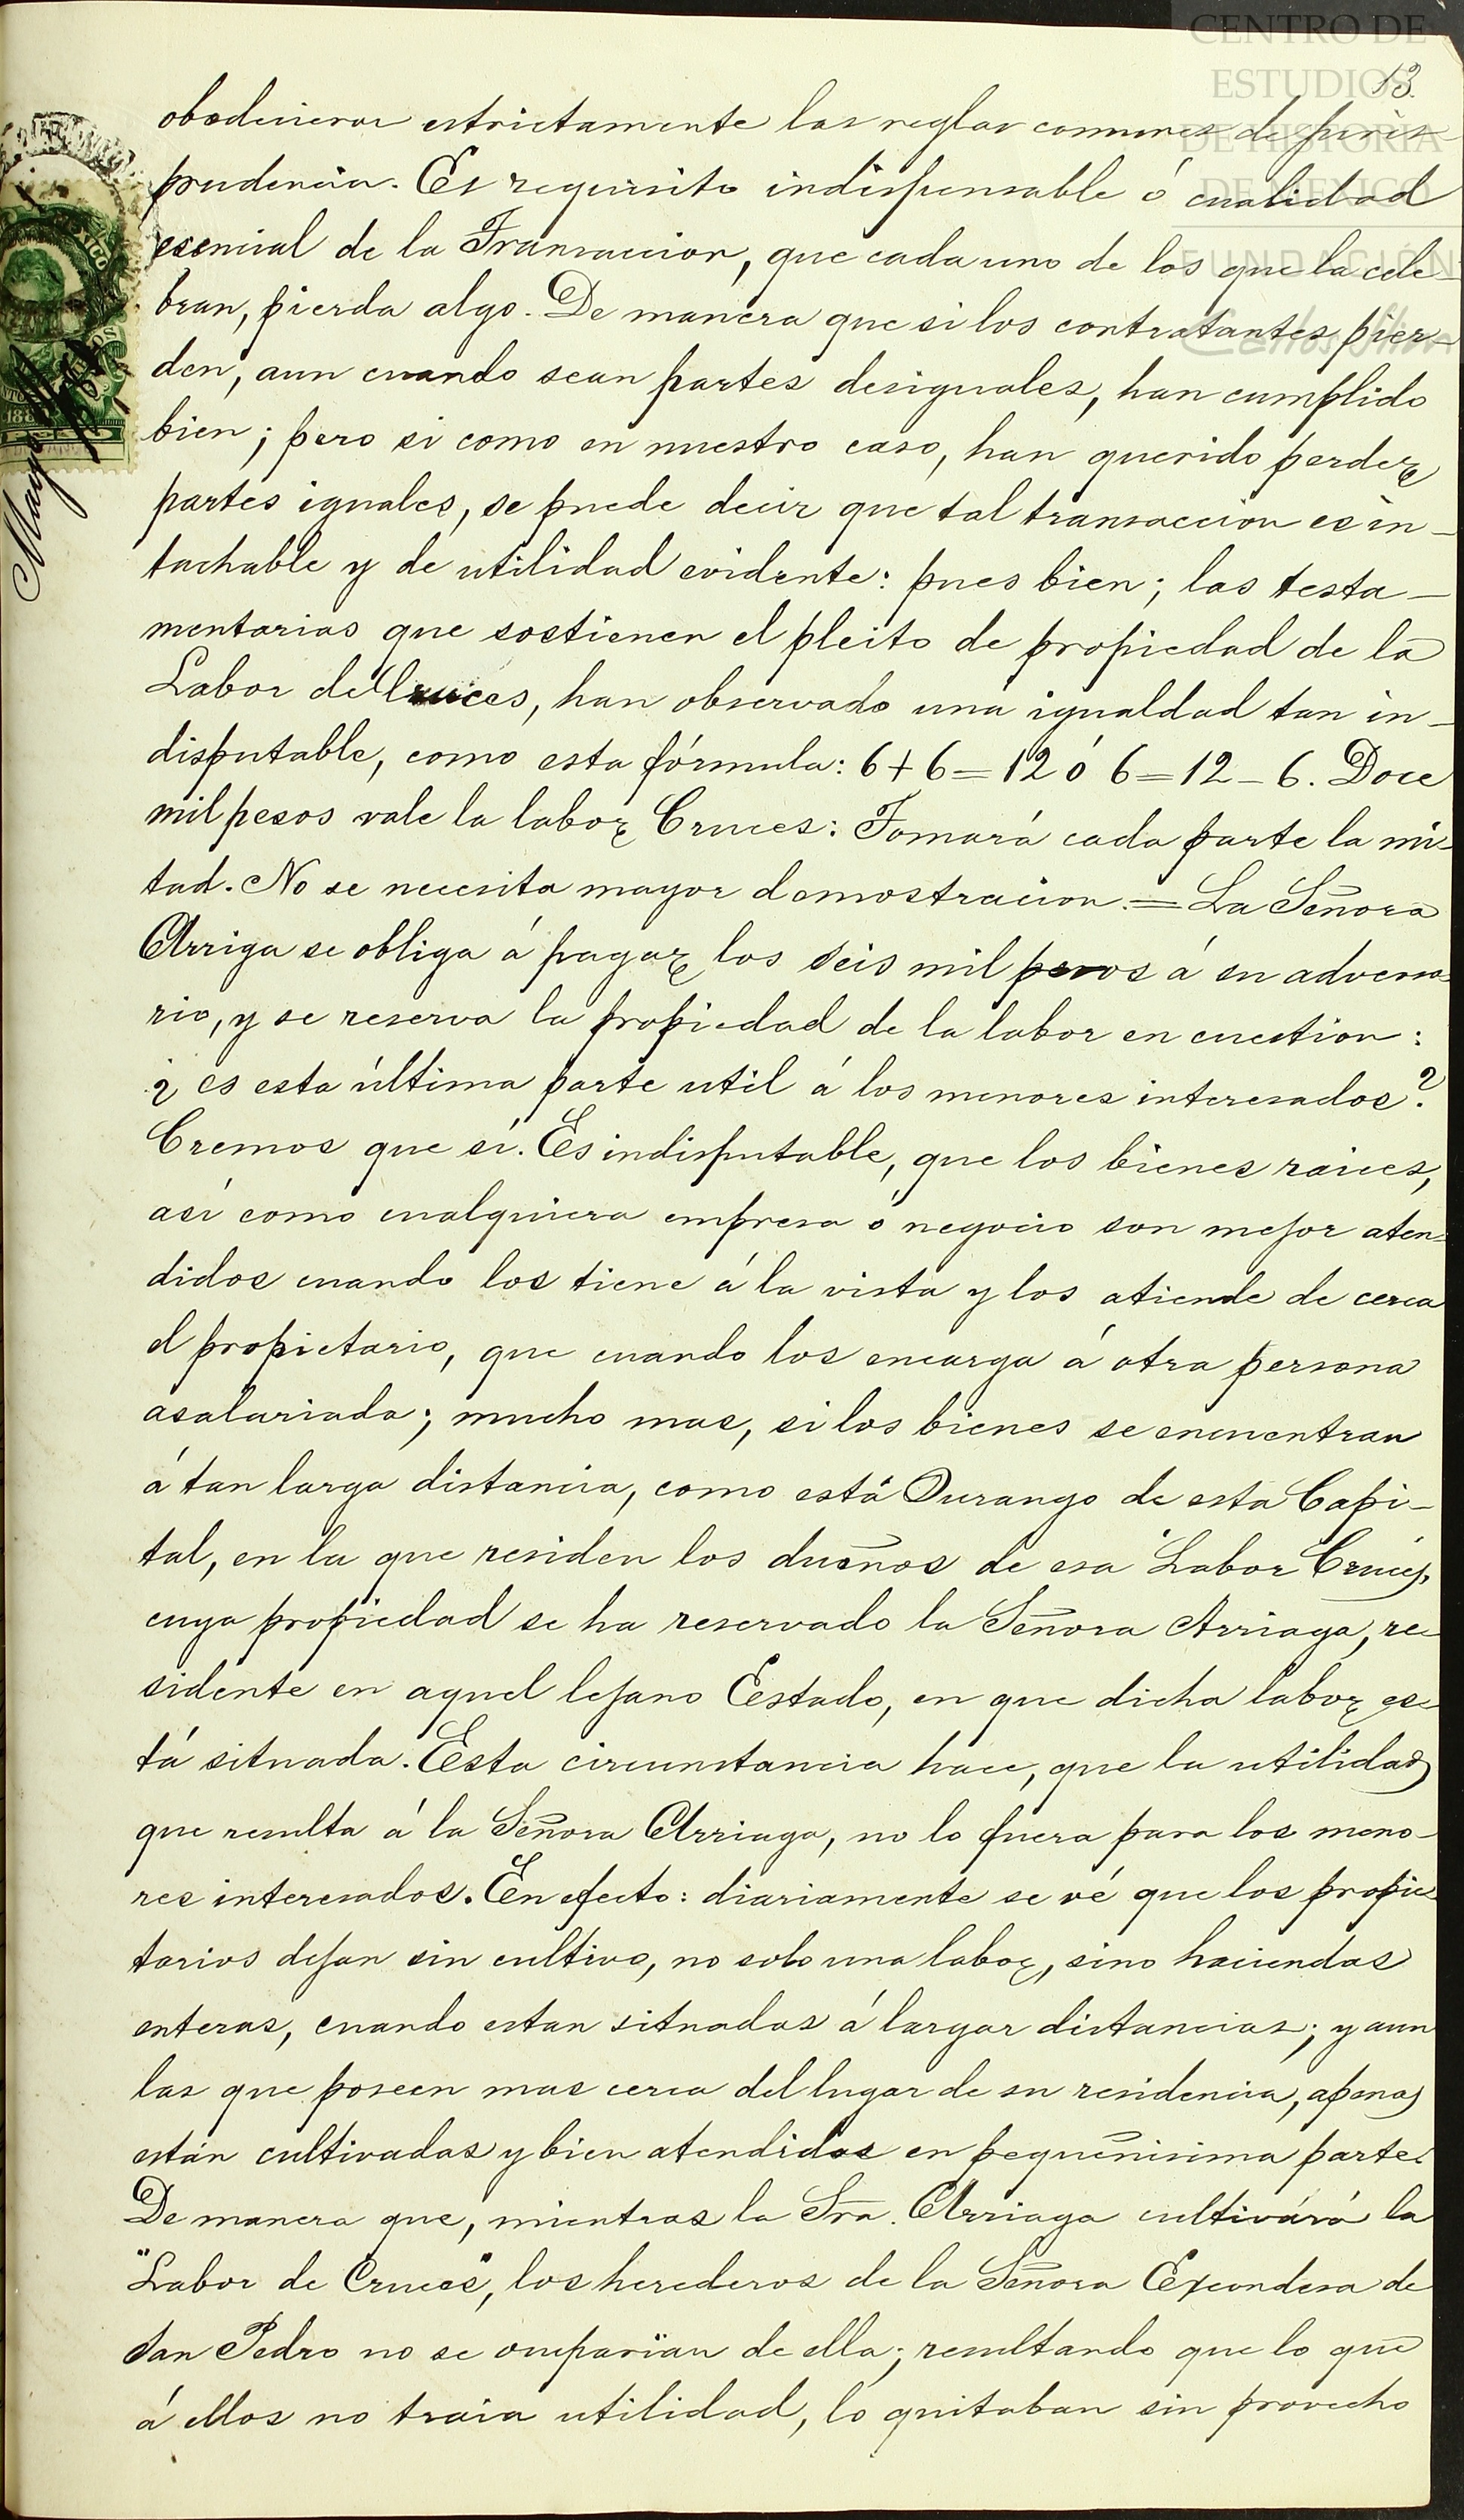 CENTRO DE
ESTUDIOS
DE HISTORIA
DE MEXICO
FUNDACIÓN
Carlos Slim
13
obedecieron estrictamente las reglas comunes de juris-
prudencia. Es requisito indispensable ó cualidad
esencial de la Transaccion, que cada uno de los que la cele-
bran, pierda algo. De manera que si los contratantes pier-
den, aun cuando sean partes desiguales, han cumplido
bien; pero si como en nuestro caso, han querido perder
partes iguales, se puede decir que tal transaccion es in-
tachable y de utilidad evidente: pues bien; las testa-
mentarias que sostienen el pleito de propiedad de la
Labor de Cruces, han observado una igualdad tan in-
disputable, como esta fórmula: 6+6=12 ó 6=12-6. Doce
mil pesos vale la labor Cruces: Tomará cada parte la mi-
tad. No se necesita mayor demostracion.= La Señora
Arriga se obliga á pagar los seis mil pesos á su adversa-
rio, y se reserva la propiedad de la labor en cuestion:
¿es esta última parte util á los menores interesados?
Cremos que sí. Es indisputable, que los bienes raices,
así como cualquiera empresa ó negocio son mejor aten-
didos cuando los tiene á la vista y los atiende de cerca
el propietario, que cuando los encarga á otra persona
asalariada; mucho mas, si los bienes se encuentran
á tan larga distancia, como está Durango de esta Capi-
tal, en la que residen los dueños de esa Labor Cruces,
cuya propiedad se ha reservado la Señora Arriaga, re-
sidente en aquel lejano Estado, en que dicha labor es-
tá situada. Esta circunstancia hace, que la utilidad
que resulta á la Señora Arriaga, no lo fuera para los meno-
res interesados. En efecto: diariamente se vé que los propie-
tarios dejan sin cultivo, no solo una labor, sino haciendas
enteras, cuando estan situadas á largas distancias; y aun
las que poseen mas cerca del lugar de su residencia, apenas
están cultivadas y bien atendidas en pequeñisima parte.
De manera que, mientras la Sra. Arriaga cultivará la
"Labor de Cruces", los herederos de la Señora Excondesa de
San Pedro no se ocuparian de ella; resultando que lo que
á ellos no traia utilidad, lo quitaban sin provecho
Mayo